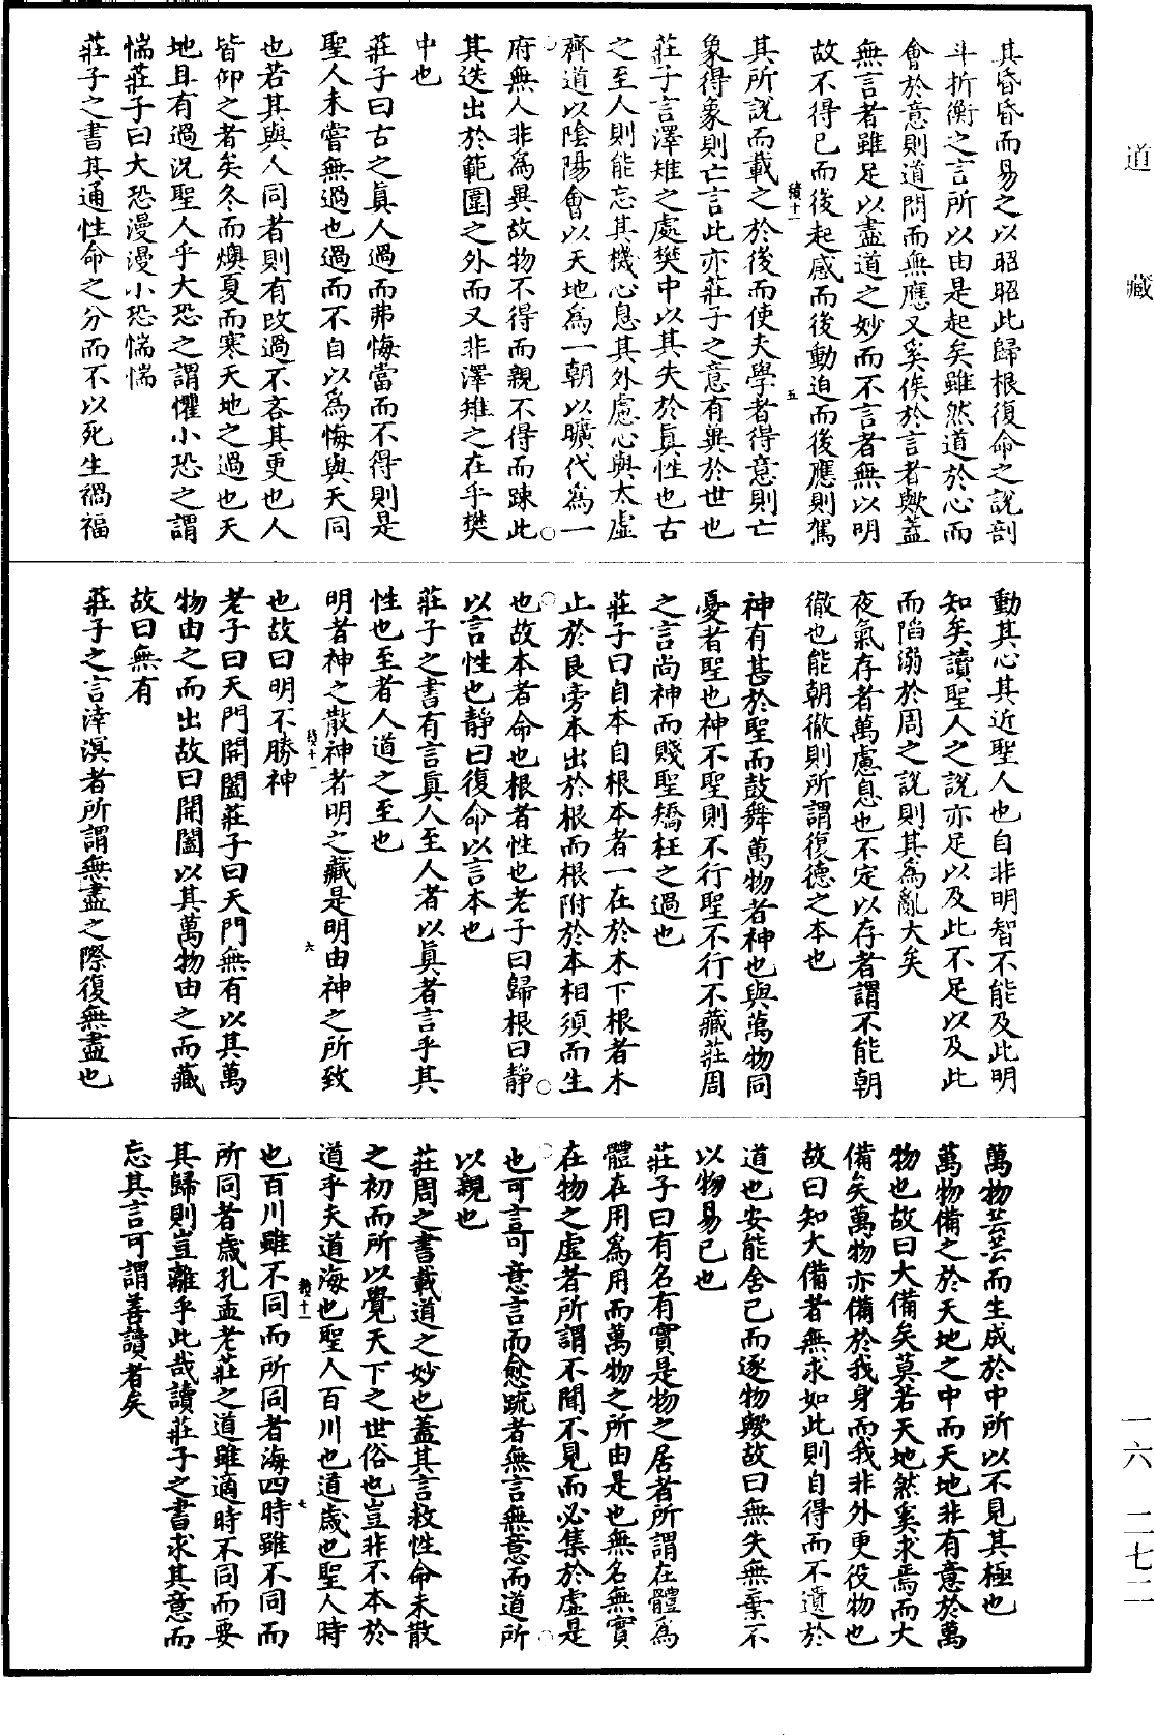 道藏
其昏昏而易之以昭昭此歸根復命之說剖
斗折衡之言所以由是起矣雖然道於心而
會於意則道問而無應又奚俟於言者歟蓋
無言者雖足以盡道之妙而不言者無以明
故不得已而後起感而後動迫而後應則駕
績十一
五
其所說而載之於後而使夫學者得意則亡
象得象則亡言此亦莊子之意有冀於世也
莊子言澤雉之處樊中以其失於眞性也古
之至人則能忘其機心息其外慮心與太虛
齊道以陰陽會以天地為一朝以曠代為一
府無人非為異故物不得而親不得而踈此
其迭出於範圍之外而又非澤雉之在乎樊
中也
莊子曰古之眞人過而弗悔當而不得則是
聖人未嘗無過也過而不自以為悔與天同
也若其與人同者則有改過不吝其更也人
皆仰之者矣冬而燠夏而寒天地之過也天
地且有過況聖人乎大恐之謂懼小恐之謂
惴莊子曰大恐漫漫小恐惴惴
莊子之書其通性命之分而不以死生禍福
動其心其近聖人也自非明智不能及此明
知矣讀聖人之說亦足以及此不足以及此
而陷溺於周之說則其為亂大矣
夜氣存者萬慮息也不定以存者謂不能朝
徹也能朝徹則所謂復德之本也
神有甚於聖而鼓舞萬物者神也與萬物同
憂者聖也神不聖則不行聖不行不藏莊周
之言尚神而賤聖矯枉之過也
莊子曰自本自根本者一在於木下根者木
止於艮旁本出於根而根附於本相須而生
也故本者命也根者性也老子曰歸根曰静
以言性也静曰復命以言本也
莊子之書有言眞人至人者以眞者言乎其
性也至者人道之至也
明者神之散神者明之藏是明由神之所致
績十一
六
也故曰明不勝神
老子曰天門開闔莊子曰天門無有以其萬
物由之而出故曰開闔以其萬物由之而藏
故曰無有
莊子之言涬溟者所謂無盡之際復無盡也
萬物芸芸而生成於中所以不見其極也
萬物備之於天地之中而天地非有意於萬
物也故曰大備矣莫若天地然奚求焉而大
備矣萬物亦備於我身而我非外更役物也
故曰知大備者無求如此則自得而不遺於
道也安能舍己而逐物歟故曰無失無棄不
以物易己也
莊子曰有名有實是物之居者所謂在體為
體在用為用而萬物之所由是也無名無實
在物之虛者所謂不聞不見而必集於虛是
也可言可意言而愈疏者無言無意而道所
以親也
莊周之書載道之妙也蓋其言救性命未散
之初而所以覺天下之世俗也豈非不本於
道乎夫道海也聖人百川也道歲也聖人時
績十一
七
也百川雖不同而所同者海四時雖不同而
所同者歲孔孟老莊之道雖適時不同而要
其歸則豈離乎此哉讀莊子之書求其意而
忘其言可謂善讀者矣
一六 二七二